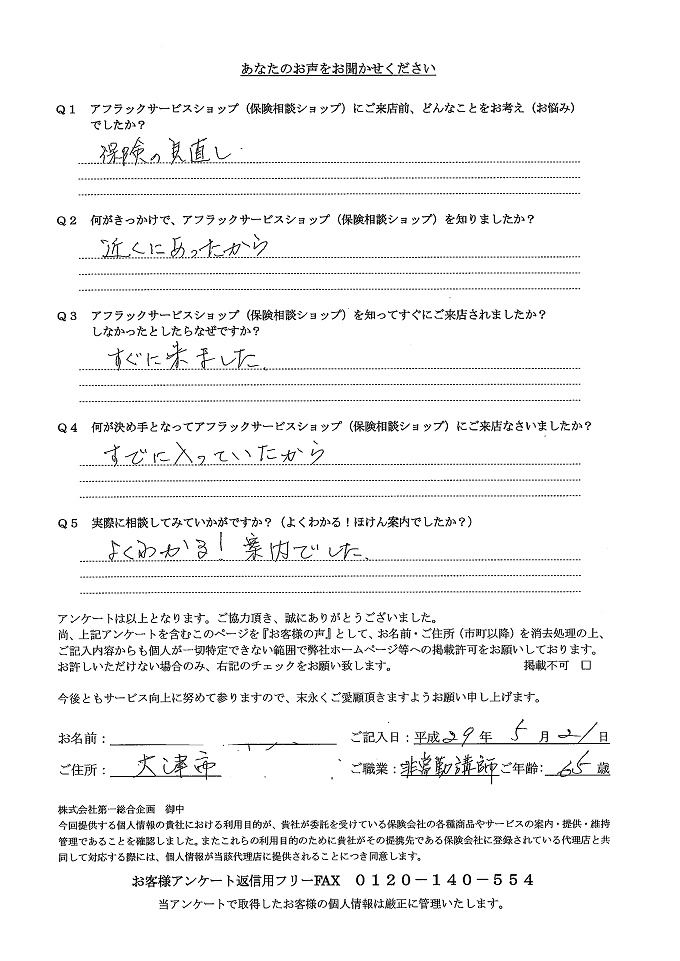 あなたのお声をお聞かせください
Q1 アフラックサービスショップ（保険相談ショップ）にご来店前、どんなことをお考え（お悩み）
でしたか？
保険の見直し
Q2 何がきっかけで、アフラックサービスショップ（保険相談ショップ）を知りましたか？
近くにあったから
Q3 アフラックサービスショップ（保険相談ショップ）を知ってすぐにご来店されましたか？
しなかったとしたらなぜですか？
すぐに来ました。
Q4 何が決め手となってアフラックサービスショップ（保険相談ショップ）にご来店なさいましたか？
すでに入っていたから
Q5 実際に相談してみていかがですか？（よくわかる！ほけん案内でしたか？）
よくわかる！案内でした。
アンケートは以上となります。ご協力頂き、誠にありがとうございました。
尚、上記アンケートを含むこのページを『お客様の声』として、お名前・ご住所（市町以降）を消去処理の上、
ご記入内容からも個人が一切特定できない範囲で弊社ホームページ等への掲載許可をお願いしております。
お許しいただけない場合のみ、右記のチェックをお願い致します。 掲載不可 □
今後ともサービス向上に努めて参りますので、末永くご愛顧頂きますようお願い申し上げます。
お名前： ご記入日：平成 29 年 5 月 21 日
ご住所： 大津市 ご職業：非常勤講師 ご年齢： 65 歳
株式会社第一総合企画 御中
今回提供する個人情報の貴社における利用目的が、貴社が委託を受けている保険会社の各種商品やサービスの案内・提供・維持
管理であることを確認しました。またこれらの利用目的のために貴社がその提携先である保険会社に登録されている代理店と共
同して対応する際には、個人情報が当該代理店に提供されることにつき同意します。
お客様アンケート返信用フリーFAX 0120－140－554
当アンケートで取得したお客様の個人情報は厳正に管理いたします。